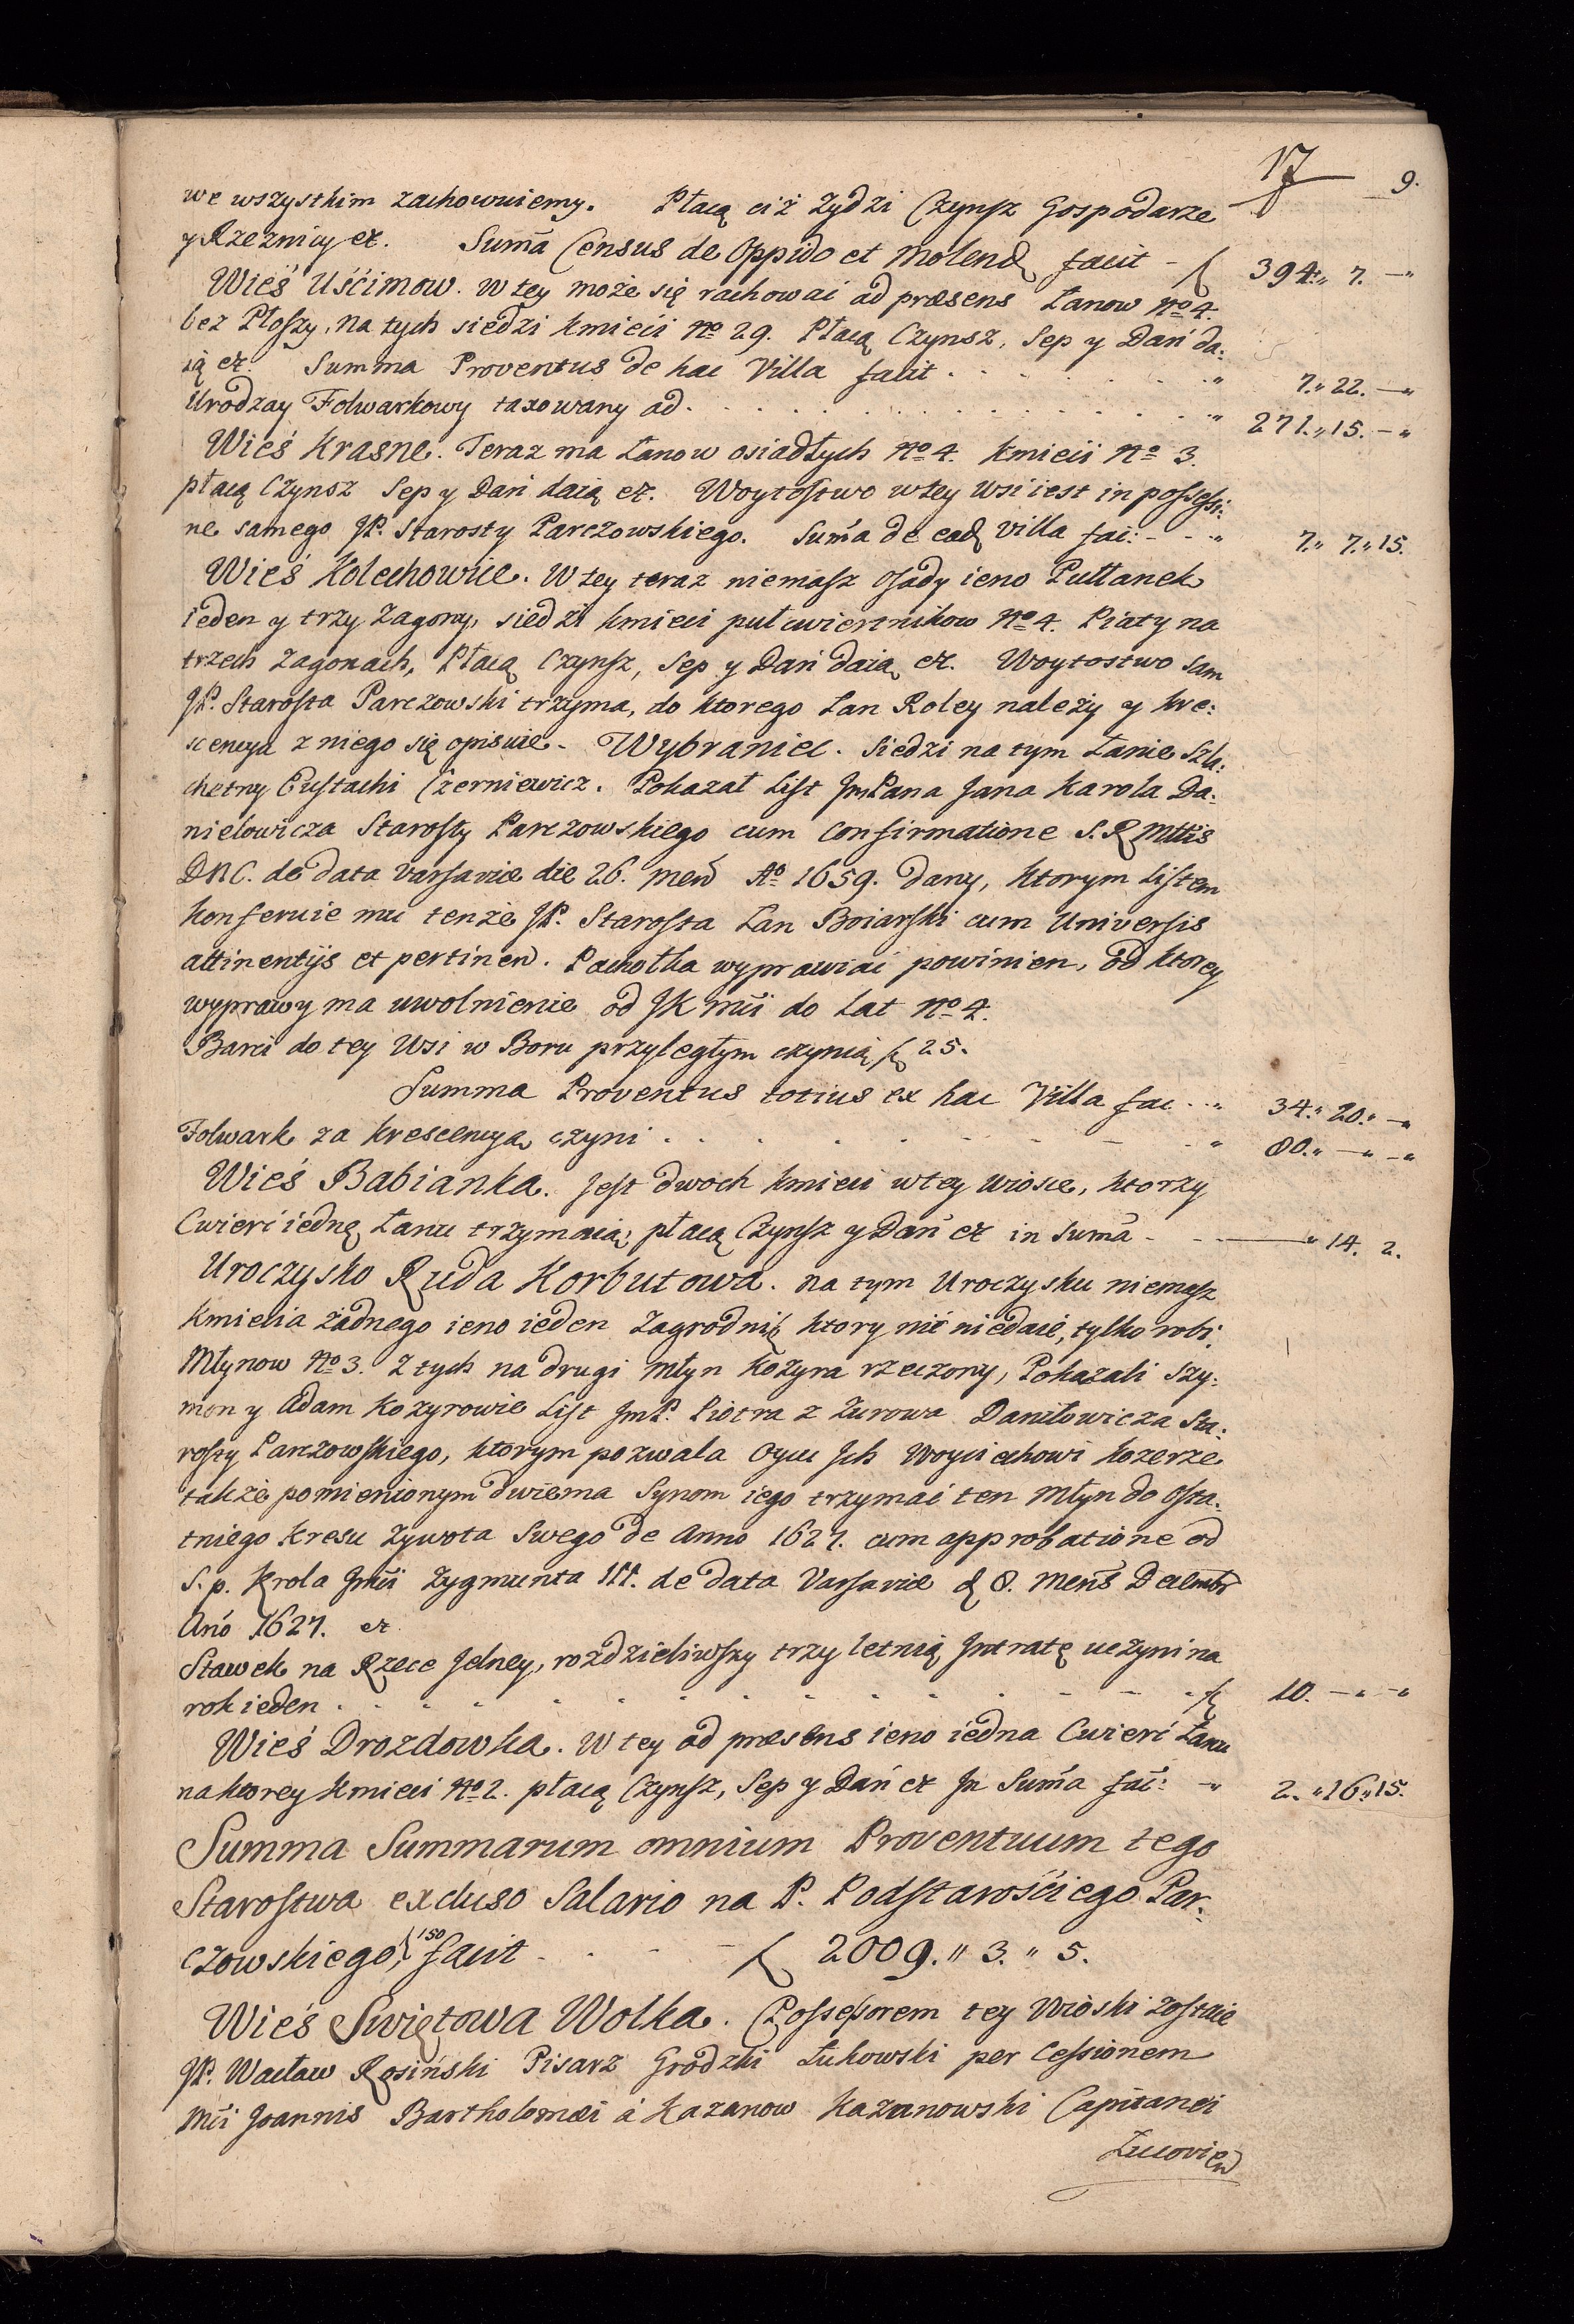 17 9.
we wszystkim zachowuiemy. Płacą ciż Zydzi Czynsz Gospodarze
y Rzeznicy et. Suma Census de Oppido et Molend facit - f 394.,, 7. —„
Wieś Uścimow. W tey może się rachować ad præsens Łanow No 4.
bez Płoszy, na tych siedzi Kmieći No 29. Płacą Czynsz, Sep y Dań da:
ią et. Summa Proventus de hac Villa facit . . . . . „ 7.„ 22. —„
Urodzay Folwarkowy taxowany ad . . . . . . . „ 271.„ 15. —„
Wieś Krasne. Teraz ma Łanow osiadłych No 4. Kmieći No 3.
płacą Czynsz Sep y Dań daią et. Woytostwo w tey Wsi iest in possessi:
ne samego JP. Starosty Parczowskiego. Suma de ead Villa fac: - - „ 7.„ 7.„ 15.
Wieś Kolechowice. W tey teraz niemasz Osady ieno Pułłanek
ieden y trzy Zagony, siedzi Kmieci puł cwiertnikow No 4. Piąty na
trzech Zagonach, Płacą Czynsz, Sep y Dań daią et. Woytostwo Sam
JP. Starosta Parczowski trzyma, do ktorego Łan Roley należy y Kre:
scencya z niego się opisuie - Wybraniec. Siedzi na tym Łanie Szla:
chetny Eustachi Czerniewicz. Pokazał List JmPana Jana Karola Da:
niełowicza Starosty Parczowskiego cum Confirmatione S. R Mttis
DNC. de data Varsaviæ die 26. Men Ao 1659. dany, ktorym Listem
konferuie mu tenże JP. Starosta Łan Boiarski cum Universis
attinentijs et pertinen. Pachołka wyprawiać powinien, od ktorey
wyprawy ma uwolnienie od JK Mći do Lat No 4.
Barci do tey Wsi w Boru przyległym czynią f 25.
Summa Proventus totius ex hac Villa fac . . „ 34.„ 20.„ —„
Folwark za Krescencyą czyni . . . . . . . „ 80.„ —„ —„
Wieś Babianka. Jest dwoch Kmieci w tey Wiosce, ktorzy
Cwierć iednę Łanu trzymaią, płacą Czynsz y Dań et in Suma - - —„ 14. 2.
Uroczysko Ruda Korbutowa. na tym Uroczysku niemasz
Kmiecia żadnego ieno ieden Zagrodnik ktory nic niedaie, tylko robi.
Młynow No 3. Z tych na drugi Młyn Kozyra rzeczony, Pokazali Szy:
mon y Adam Kozyrowie List JmP. Piotra z Zurowa Daniłowicza Sta:
rosty Parczowskiego, ktorym pozwala Oycu Jch Woyciechowi Kozerze
także pomienionym dwiema Synom iego trzymać ten Młyn do Osta:
tniego Kresu Zywota Swego de Anno 1627. cum approbatione od
S. p. Krola Jmći Zygmunta III. de data Varsaviæ d 8. Mens Decembr
Ano 1627. et
Stawek na Rzece Jelney, rozdzieliwszy trzy letnią Jntratę uczyni na
rok ieden . . . . . . . . . . . f 10. —„ —„
Wieś Drozdowka. W tey ad præsens ieno iedna Cwierć Łanu
na ktorey Kmieci No 2. płacą Czynsz, Sep y Dań et Jn Suma fac: „ 2.„ 16„ 15.
Summa Summarum omnium Proventuum tego
Starostwa excluso Salario na P. Podstarościego Par:
czowskiego, f 150 facit - . . - - f 2009.„ 3.„ 5.
Wieś Swiętowa Wolka. Possessorem tey Wioski zostaie
JP. Wacław Rosiński Pisarz Grodzki Łukowski per Cessionem
Mći Joannis Bartholomæi à Kazanow Kazanowski Capitanei
Lucovien